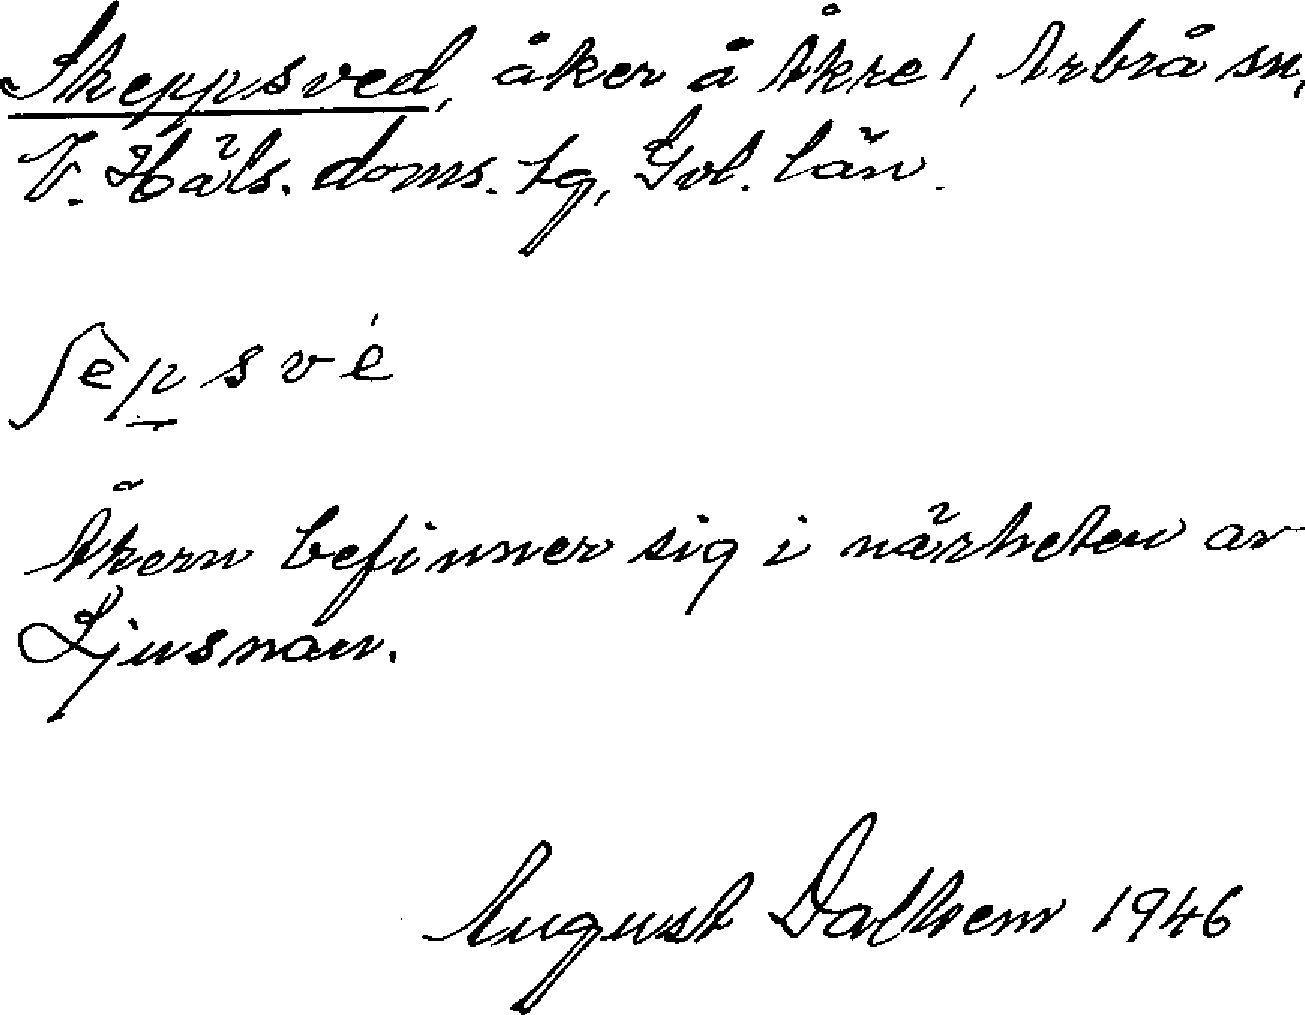 Skeppsved, åker å Åkre 1, Arbrå sn,
V. Häls. doms. tg, Gvl. län.
ʃèp̲své
Åkern befinner sig i närheten av
Ljusnan.
August Dalhem 1946